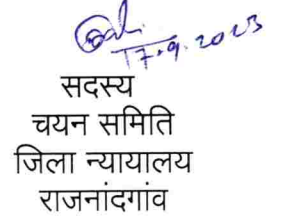 17.9.2023
सदस्य
चयन समिति
जिला न्यायालय
राजनांदगांव